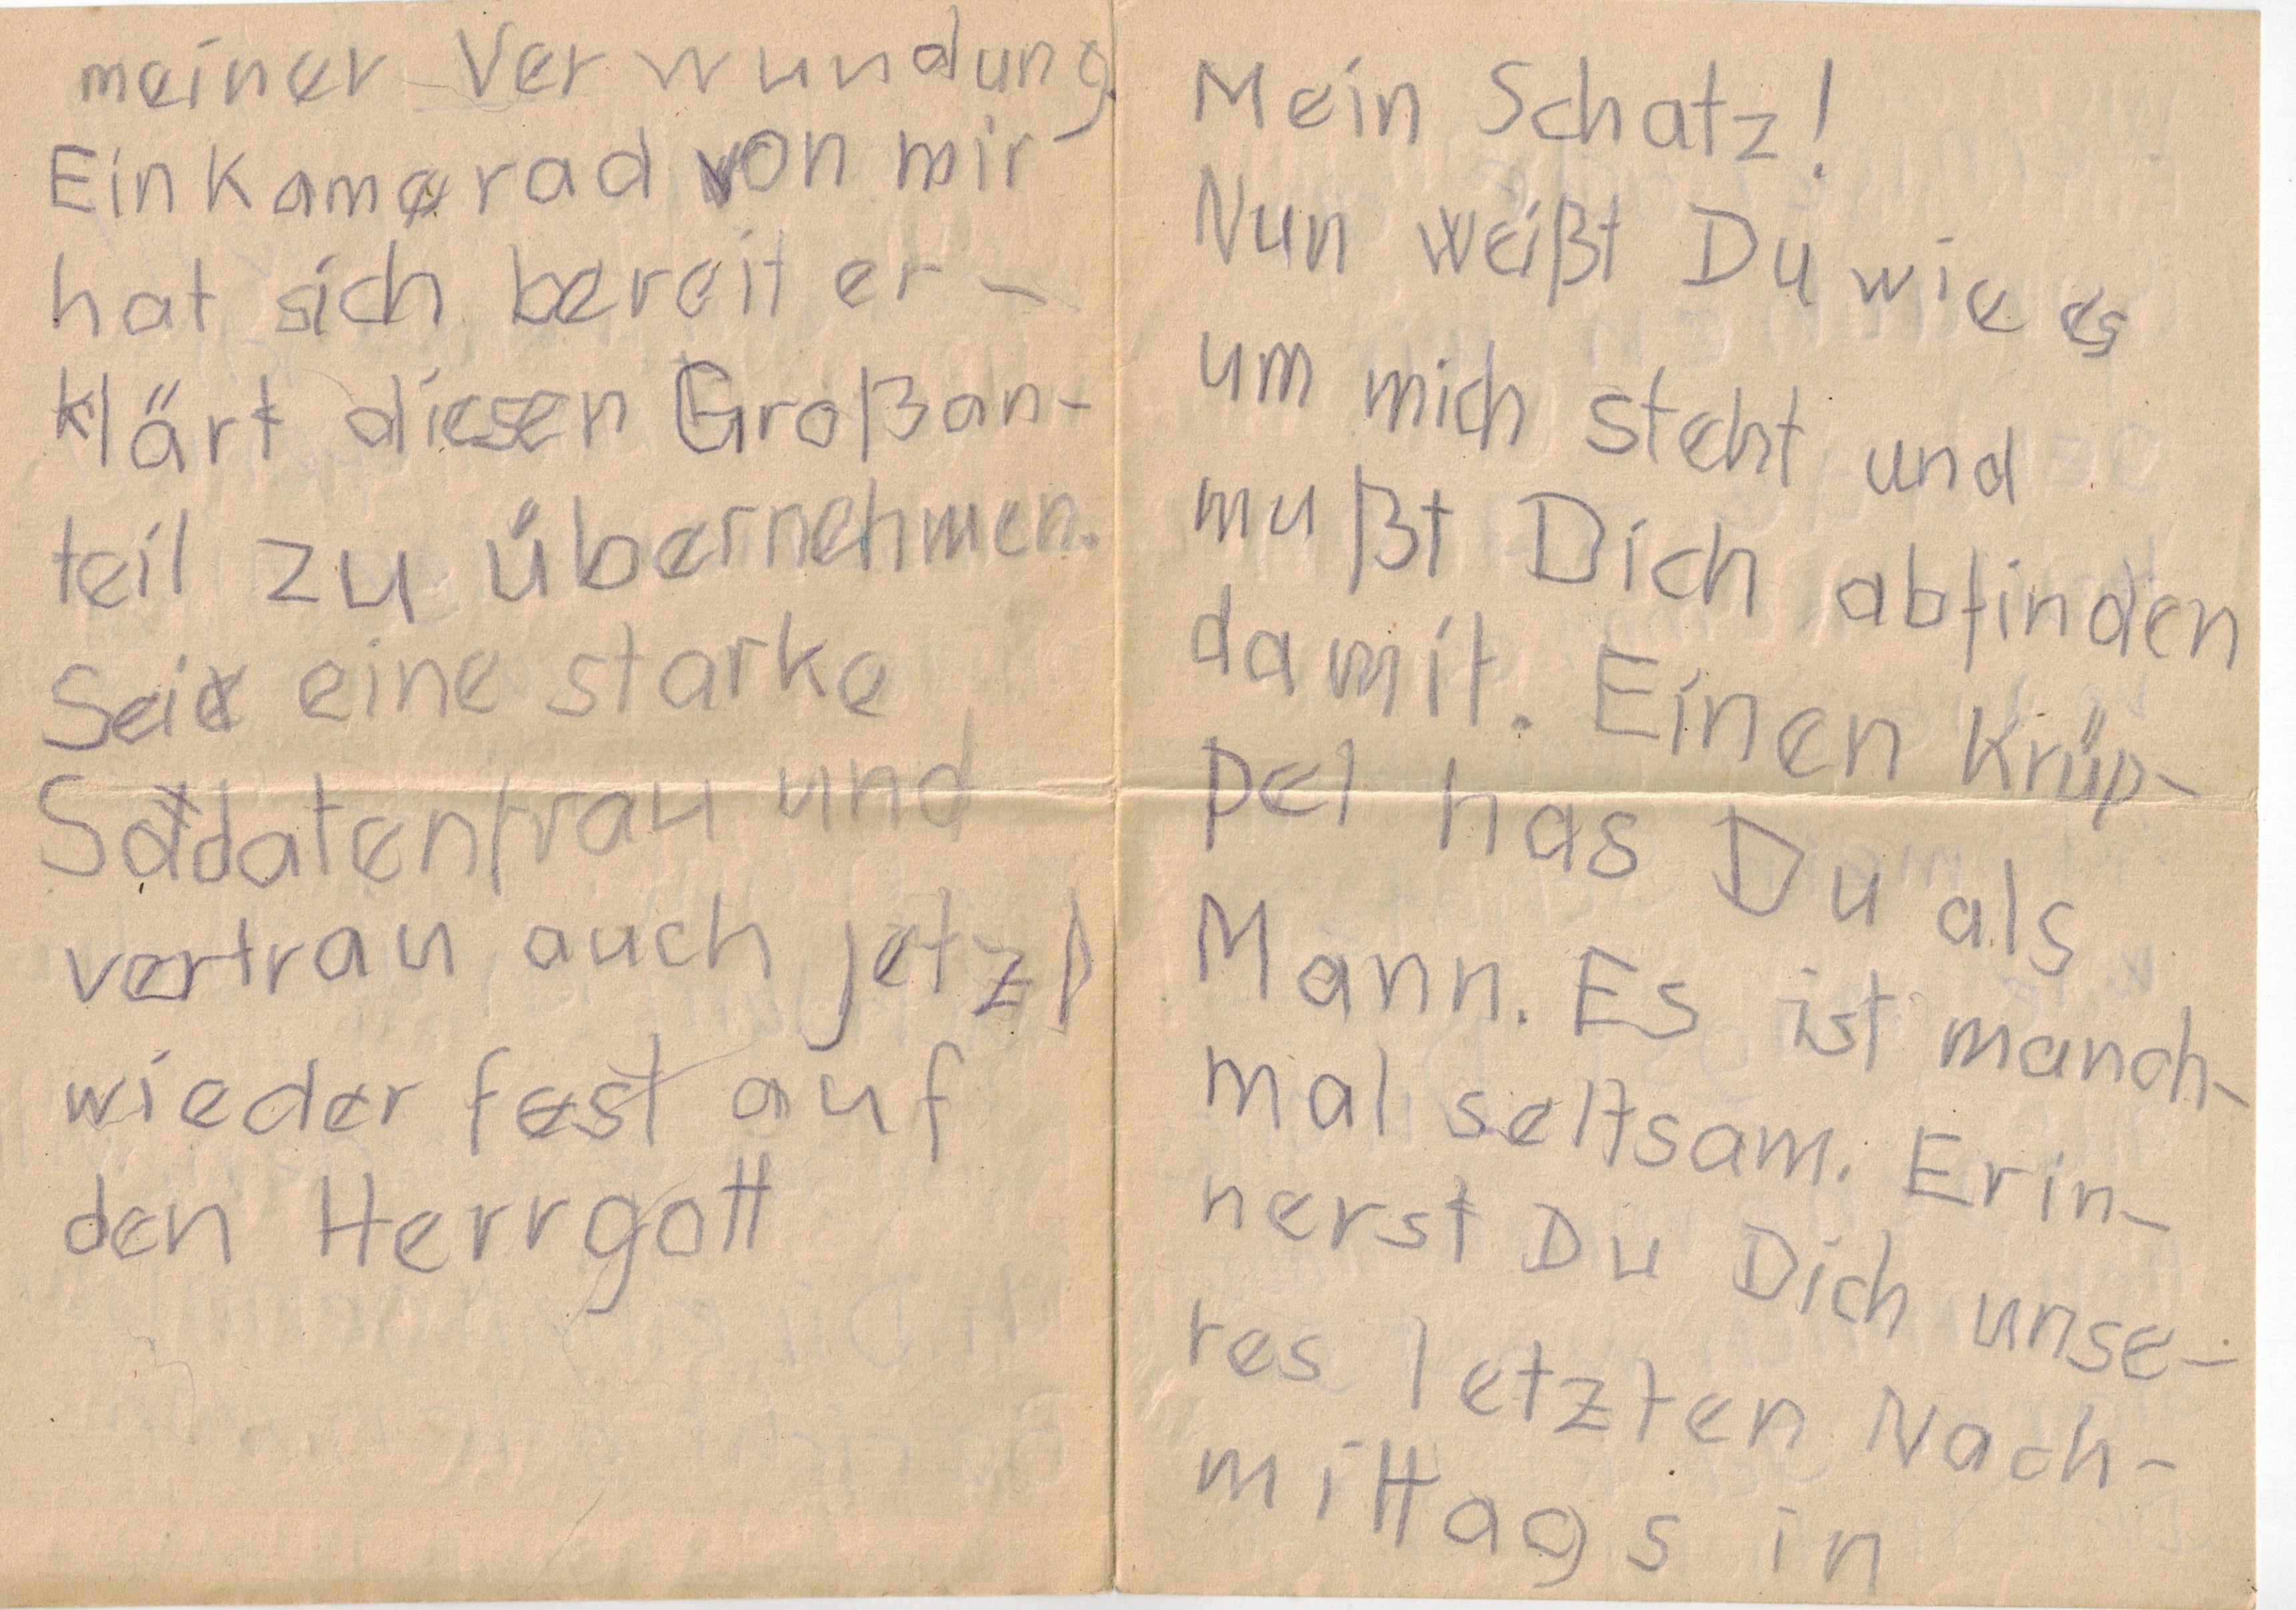 meiner Verwundung.
Ein Kamerad von mir
hat sich bereit er-
klärt diesen Großan-
teil zu übernehmen.
Sei eine starke
Soldatenfrau und
vertrau auch jetzt
wieder fest auf
den Herrgott
Mein Schatz!
Nun weißt Du wie es
um mich steht und
mußt Dich abfinden
damit. Einen Krüp-
pel has Du als
Mann. Es ist manch-
mal seltsam. Erin-
nerst Du Dich unse-
res letzten Nach-
mittags in